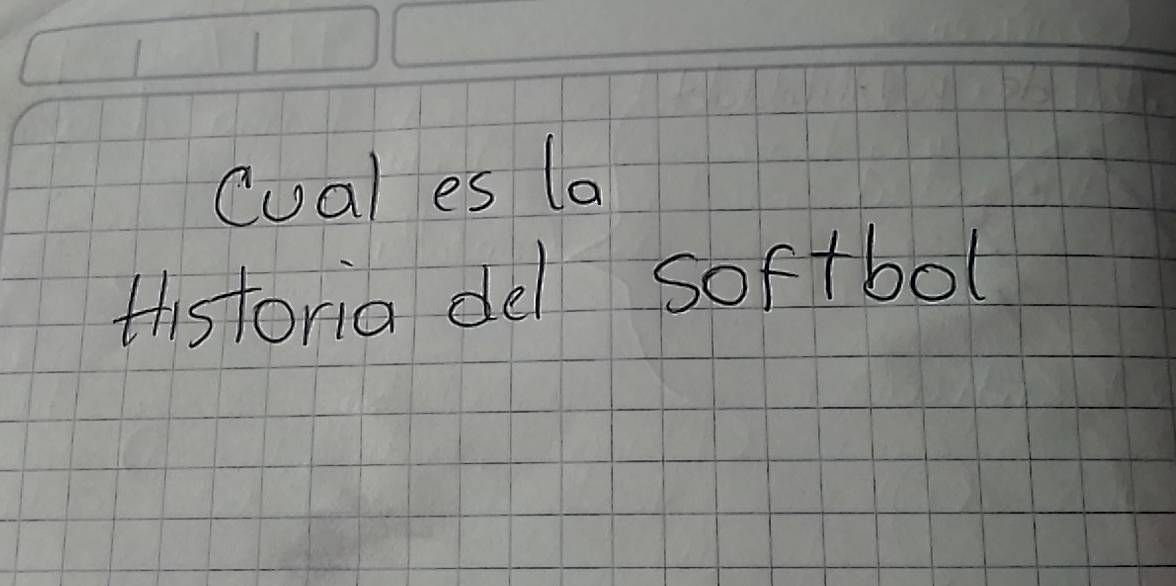 Cual es la
Historia del softbol